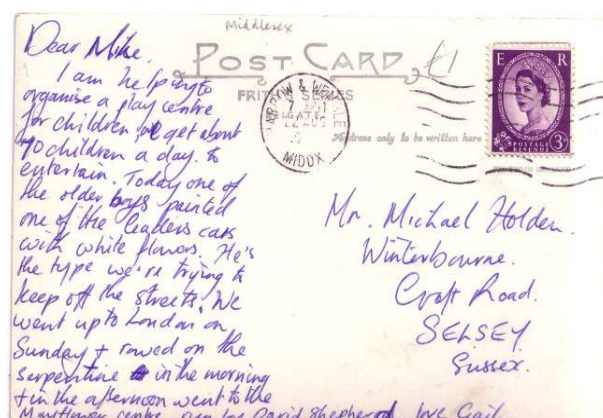 Middlesex
POST CARD
£1
FRITH SERIES
Address only to be written here
HARROW & WEMBLEY
MIDDX
E R
3D
POSTAGE
REVENUE
Dear Mike.
I am helping to
organise a play centre
for children, get about
70 children a day. to
entertain. Today one of
the older boys painted
one of the leaders cars
with white flowers. He's
the type we're trying to
keep off the streets. We
went up to London on
Sunday + rowed on the
serpentine in the morning
+ in the afternoon went to the
Mayflower centre, run by David Shepherd love Gail
Mr. Michael Holden.
Winterbourne.
Croft Road.
SELSEY
Sussex.